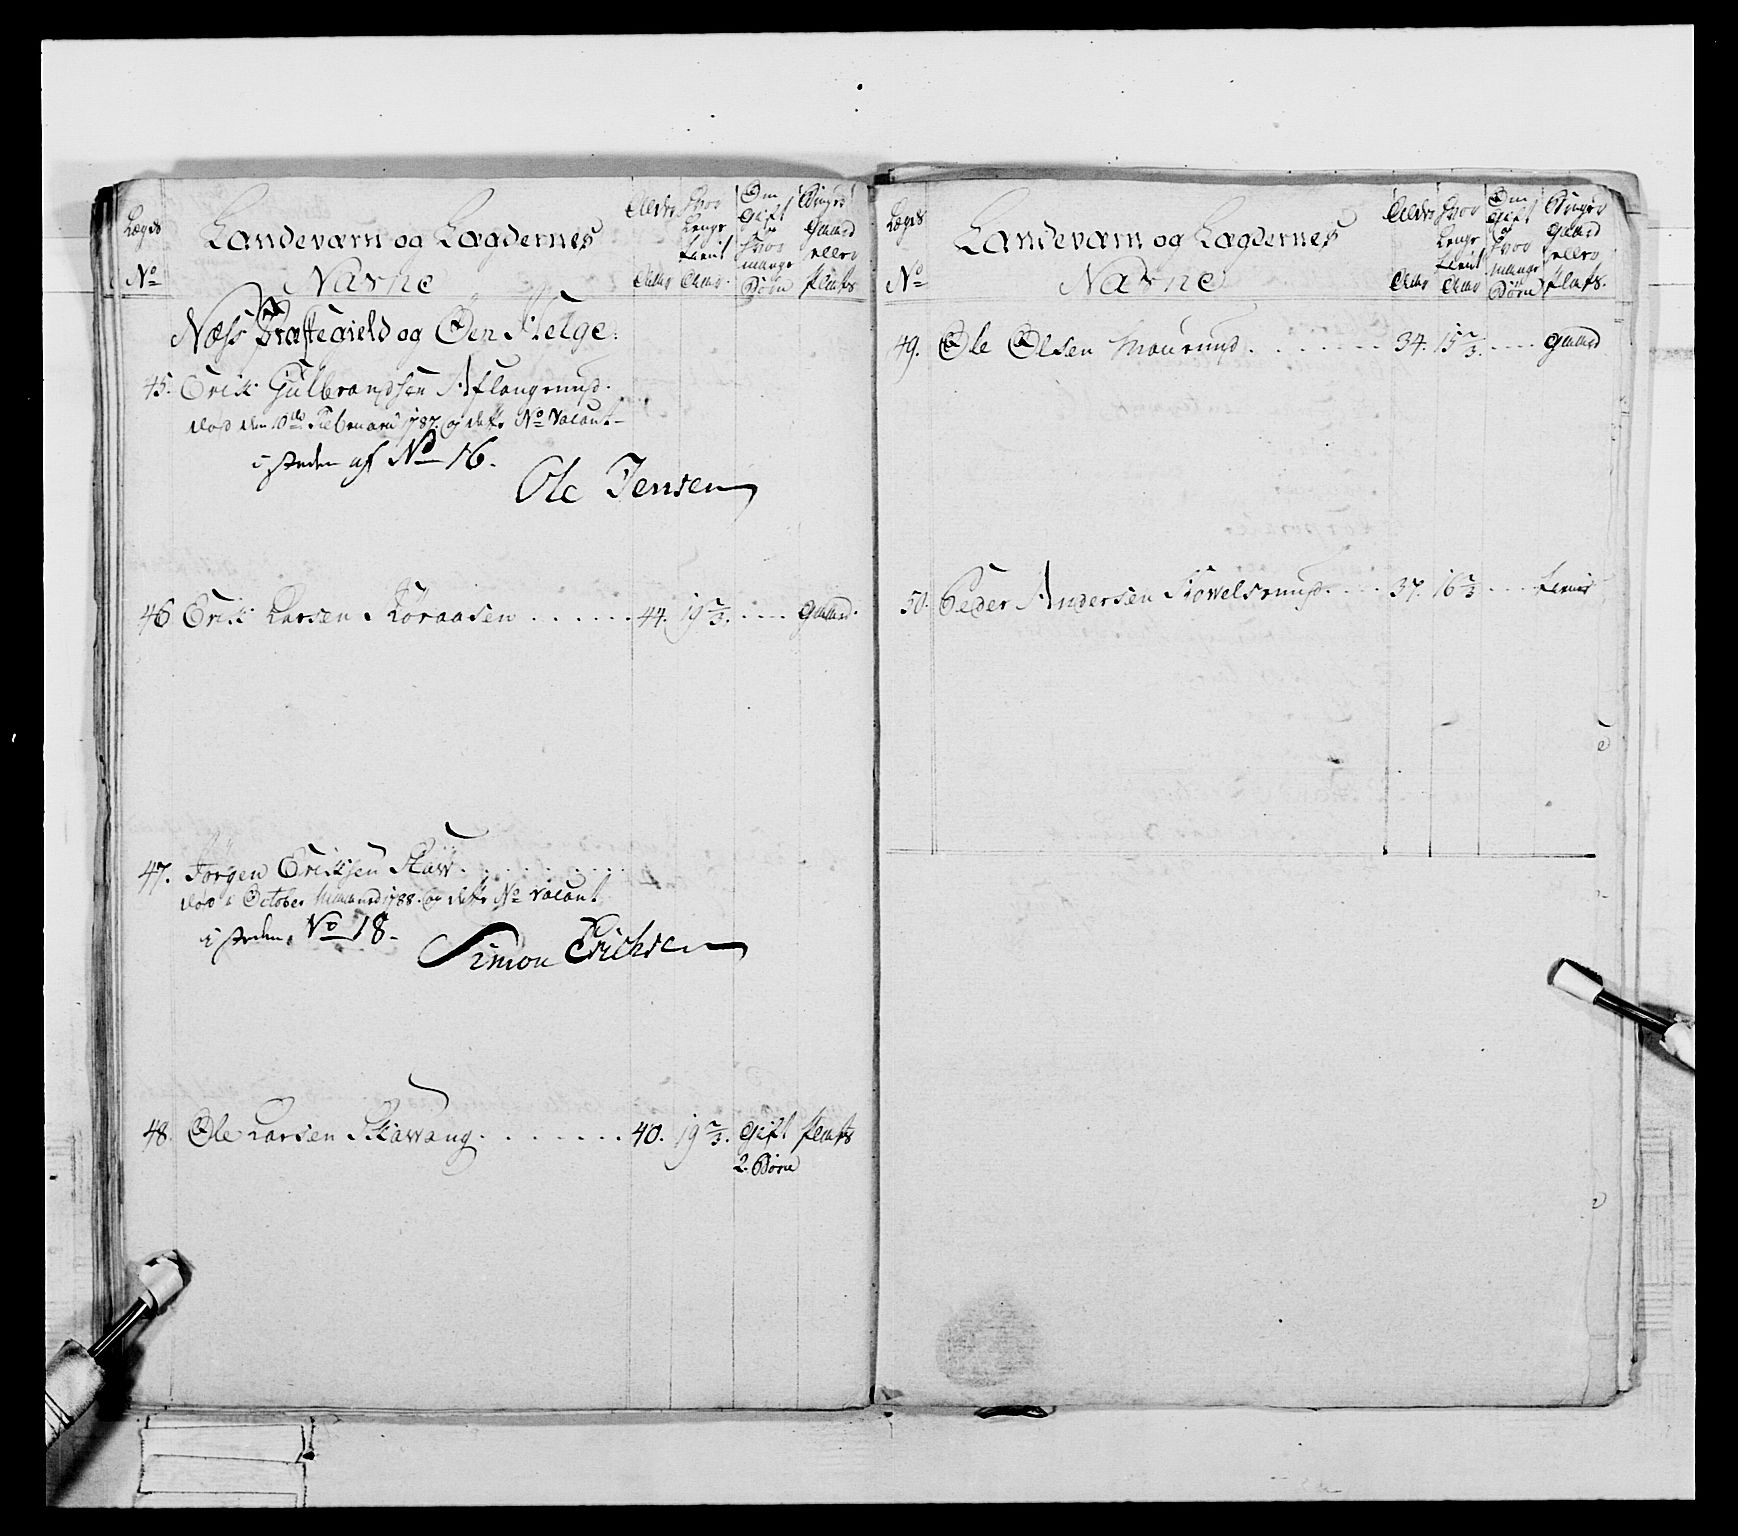 Lægds No
Landeværn og Lægdernes Navne
Alder Aar
Hvor Lenge tient Aar
Om Gift og hvor mange Børn
Gaard eller Plads
Næss Præstegield og Øen Helge:
45. Erik Gulbrandsen
død den 10de Februarii 1787. og dette No Vacant
i steden af No 16.
Ole Jensen
46 Erik Larsen ...... 44. 19 2/3. .... gaard.
47. Jørgen Eriksen
død i October Maaned 1788. og dette No Vacant
i steden No 18.
Simon Erichsen
48. Ole Larsen ....... 40. 19 2/3. Gift Plads
2. Børn
Lægds No
Landeværn og Lægdernes Navne
Alder Aar
Hvor Lenge tient Aar
Om Gift og hvor mange Børn
Gaard eller Plads.
49. Ole Olsen Mourund ....... 34. 15 2/3. .... gaard
50. Peder Andersen ... 37. 16 2/3 ... tienr